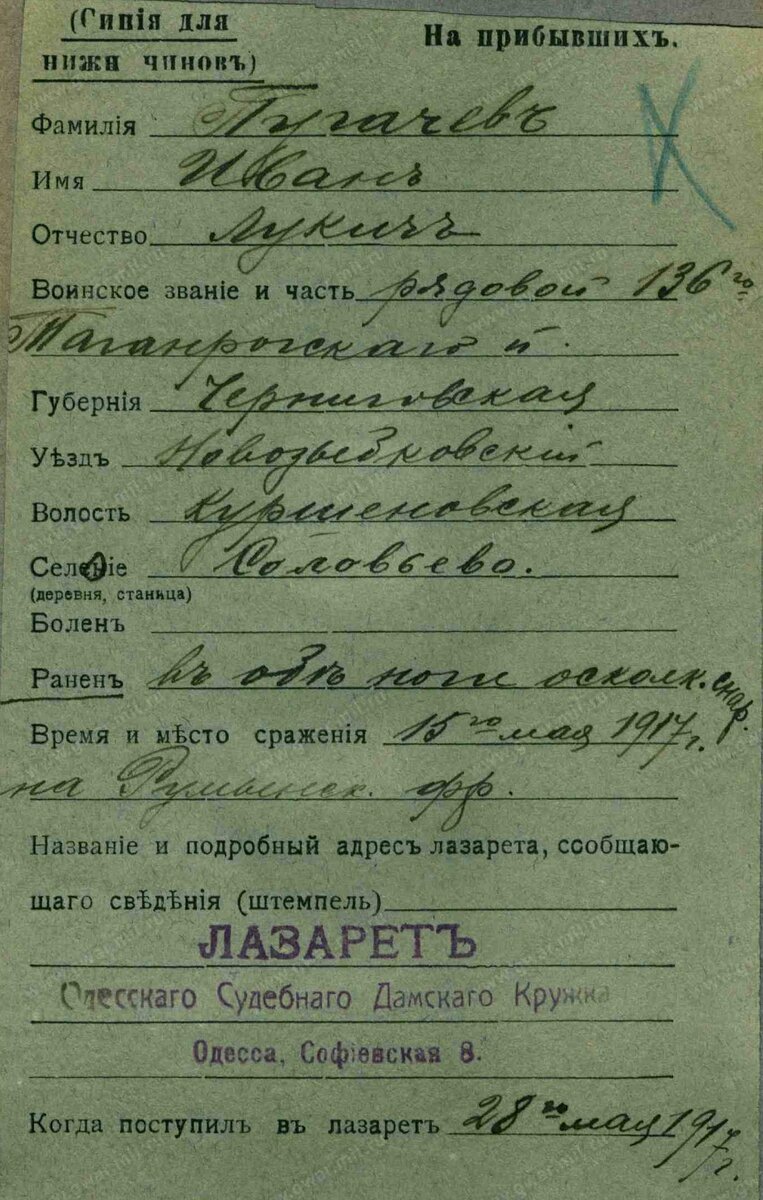 (Синія для
нижн чиновъ)
На прибывшихъ.
Фамилія Пугачевъ
Имя Иванъ
Отчество Лукичъ
Воинское званіе и часть рядовой 136го
Таганрогскаго п.
Губернія Черниговская
Уѣздъ Новозыбковскій
Волость Куршеновская
Селеніе Соловьево.
(деревня, станица)
Боленъ
Раненъ въ обѣ ноги осколк. снар.
Время и мѣсто сраженія 15го мая 1917 г.
на Румынск. фр.
Названіе и подробный адресъ лазарета, сообщаю-
щаго свѣдѣнія (штемпель)
ЛАЗАРЕТЪ
Одесскаго Судебнаго Дамскаго Кружка
Одесса, Софіевская 8.
Когда поступилъ въ лазаретъ 28го мая 1917 г.